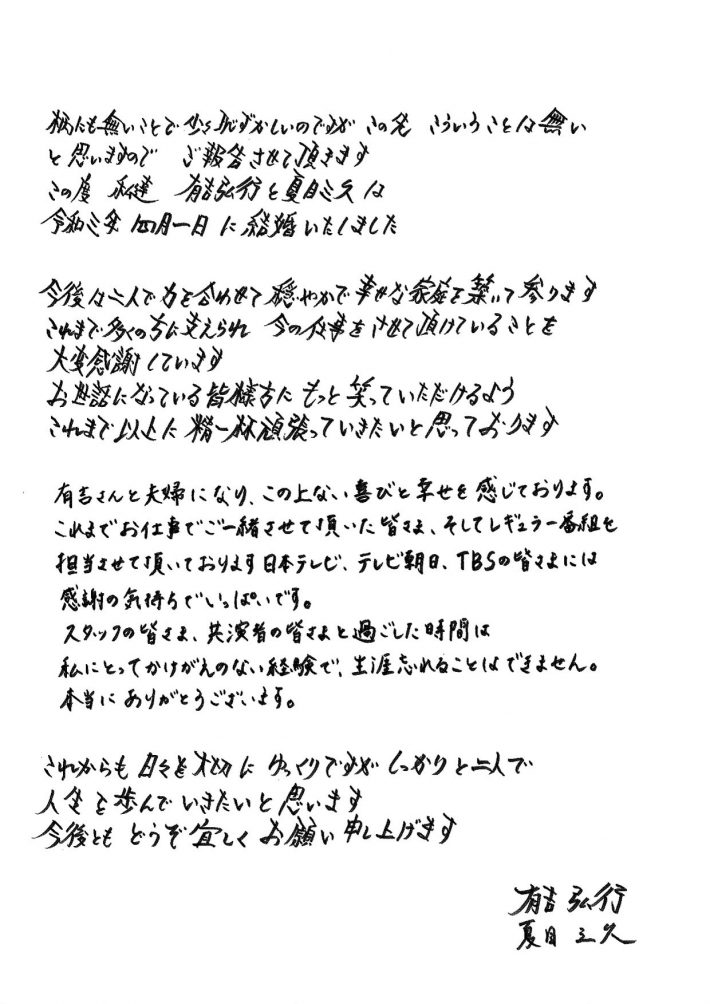 柄にも無いことで 少々恥ずかしいのですが この先 こういうことは無い
と思いますので ご報告させて頂きます
この度 私達 有吉弘行と夏目三久は
令和三年 四月一日 に結婚いたしました
今後は二人で力を合わせて 穏やかで幸せな家庭を築いて参ります
これまで多くの方に支えられ 今の仕事をさせて頂けていることを
大変感謝しています
お世話になっている皆様方に もっと笑っていただけるよう
これまで以上に精一杯頑張っていきたいと思っております
有吉さんと夫婦になり、この上ない喜びと幸せを感じております。
これまでお仕事でご一緒させて頂いた皆さま、そしてレギュラー番組を
担当させて頂いております日本テレビ、テレビ朝日、TBSの皆さまには
感謝の気持ちでいっぱいです。
スタッフの皆さま、共演者の皆さまと過ごした時間は
私にとってかけがえのない経験で、生涯忘れることはできません。
本当にありがとうございます。
これからも 日々を大切に ゆっくりですが しっかりと二人で
人生を歩んでいきたいと思います
今後とも どうぞ宜しく お願い申し上げます
有吉弘行
夏目三久